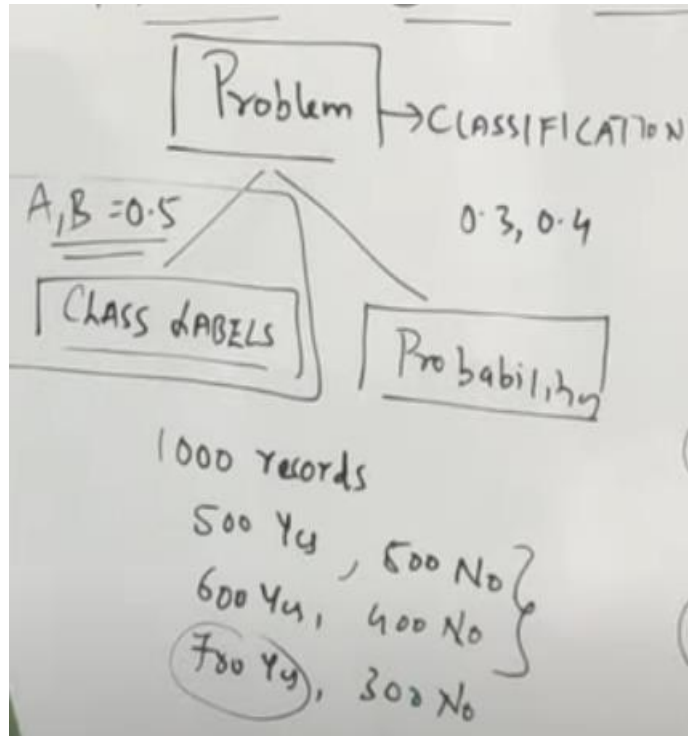 Problem → CLASSIFICATION
A,B = 0.5
0.3, 0.4
CLASS LABELS
Probability
1000 records
500 Yes, 500 No
600 Yes, 400 No
700 Yes, 300 No